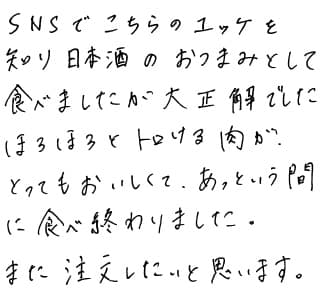 SNSでこちらのユッケを
知り日本酒のおつまみとして
食べましたが大正解でした
ほろほろとトロける肉が、
とってもおいしくて、あっという間
に食べ終わりました。
また注文したいと思います。